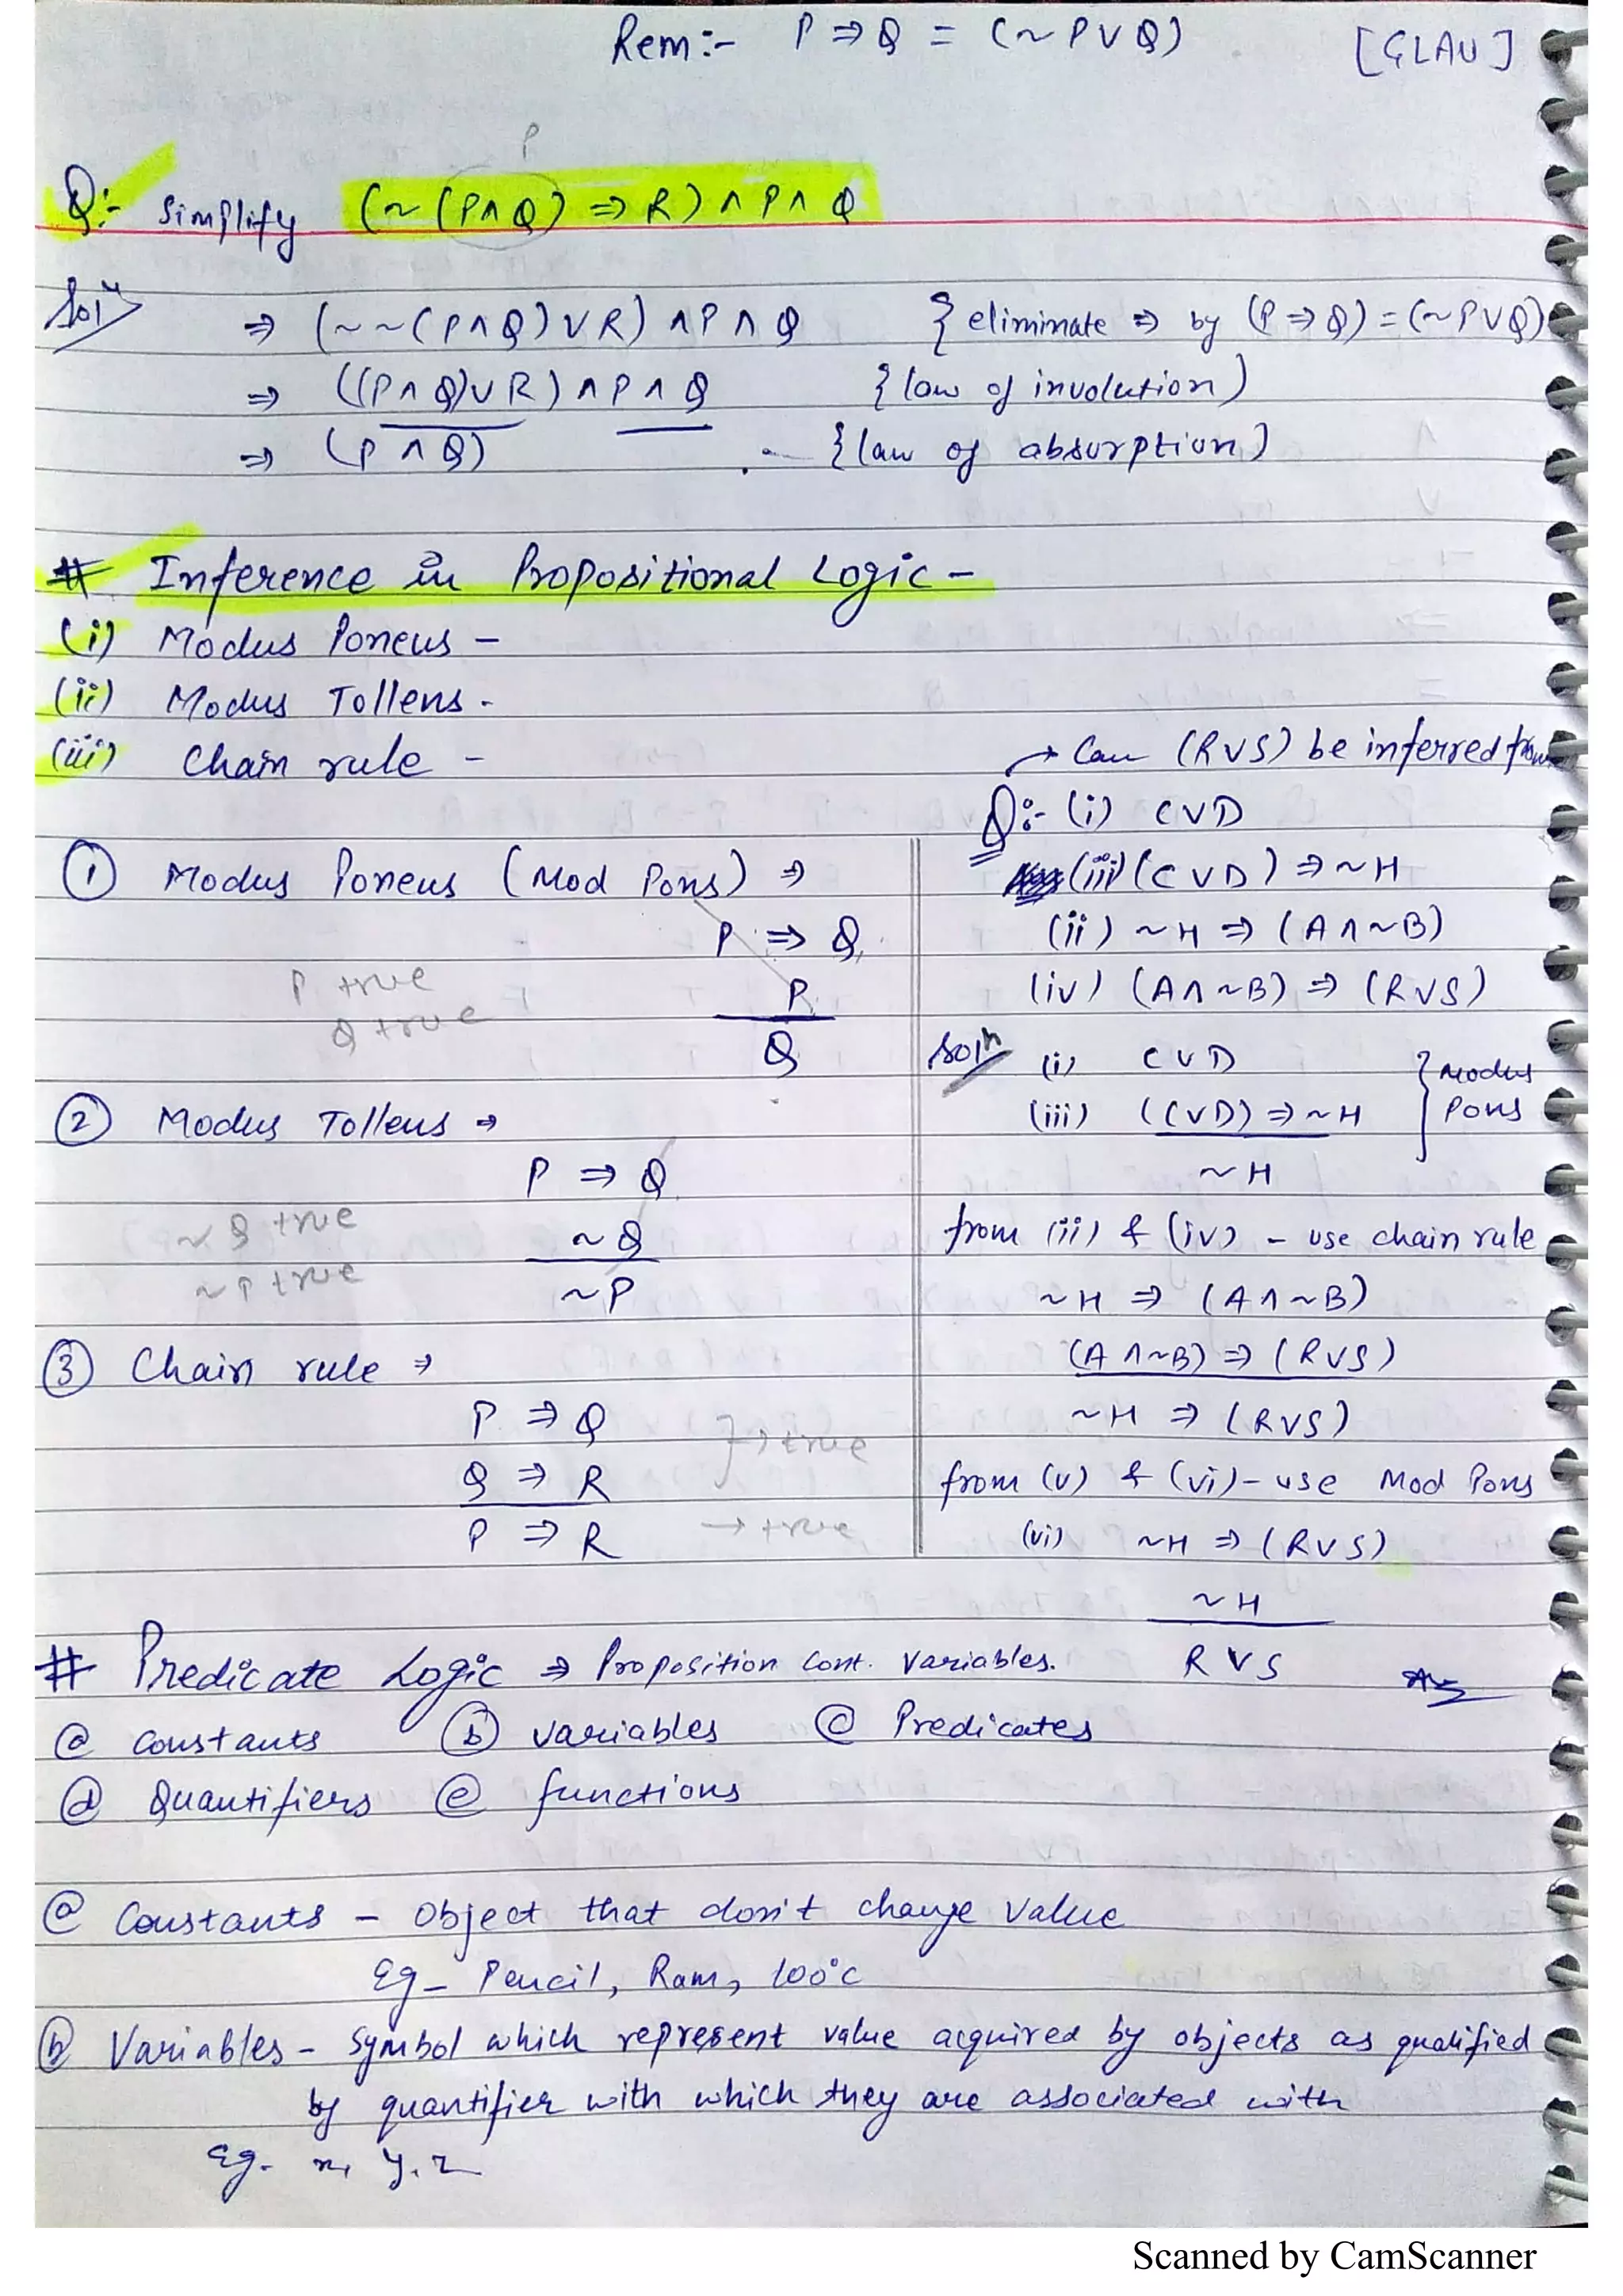 Rem:- P ⇒ Q = (~ P V Q) [GLAU]
P
Q:- Simplify (~ (P ∧ Q) ⇒ R) ∧ P ∧ Q
Solⁿ ⇒ (~ ~ (P ∧ Q) V R) ∧ P ∧ Q { eliminate ⇒ by (P ⇒ Q) = (~P V Q)
⇒ ((P ∧ Q) V R) ∧ P ∧ Q { law of involution )
⇒ (P ∧ Q) { law of absurption ]
# Inference in Propositional Logic -
(i) Modus Poneus -
(ii) Modus Tollens -
(iii) Chain rule -
① Modus Poneus (Mod Pons) ⇒
P ⇒ Q
P true
P
Q true
Q
② Modus Tollens ⇒
P ⇒ Q
~ Q true
~ Q
~ P true
~ P
③ Chain rule ⇒
P ⇒ Q
→ true
Q ⇒ R
P ⇒ R → true
→ Can (R V S) be inferred from
Q:- (i) C V D
(iii) (C V D) ⇒ ~ H
(ii) ~ H ⇒ (A ∧ ~ B)
(iv) (A ∧ ~ B) ⇒ (R V S)
Solⁿ (i) C V D
(iii) (C V D) ⇒ ~ H } Modus Pons
~ H
from (ii) & (iv) - use chain rule
~ H ⇒ (A ∧ ~ B)
(A ∧ ~ B) ⇒ (R V S)
~ H ⇒ (R V S)
from (v) & (vi) - use Mod Pons
(vi) ~ H ⇒ (R V S)
~ H
R V S Ans
# Predicate Logic ⇒ Proposition cont. variables.
ⓐ Constants ⓑ variables ⓒ Predicates
ⓓ Quantifiers ⓔ functions
ⓐ Constants - Object that don't change value
Eg - Pencil, Ram, 100°c
ⓑ Variables - Symbol which represent value acquired by objects as qualified
by quantifier with which they are associated with
Eg. x, y, z
Scanned by CamScanner